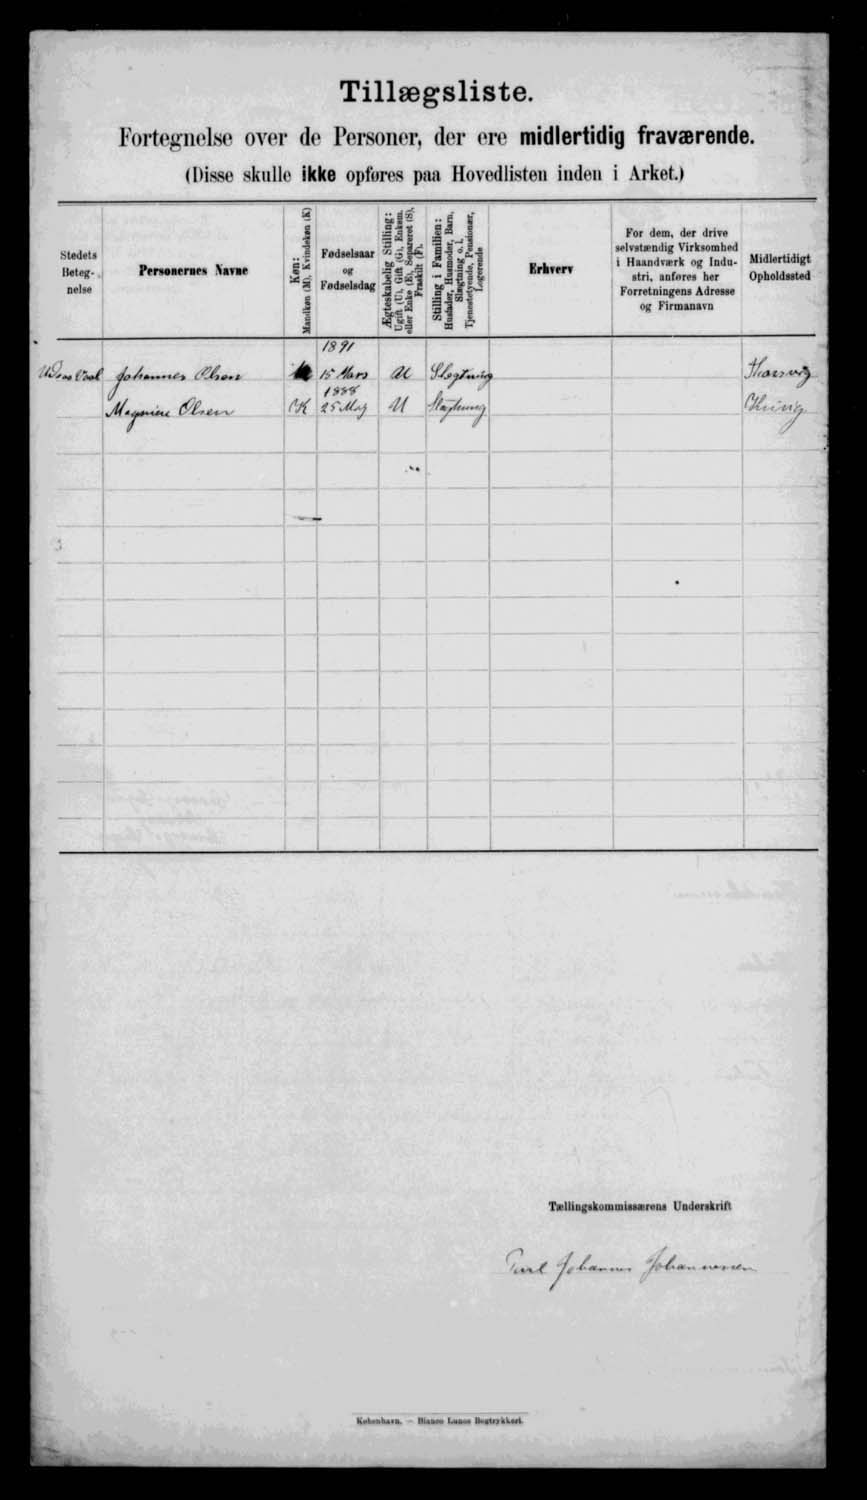 Tillægsliste.
Fortegnelse over de Personer, der ere midlertidig fraværende.
(Disse skulle ikke opføres paa Hovedlisten inden i Arket.)
Stedets Beteg-
nelse
Personernes Navne
Køn:
Mandkøn (M), Kvindekøn (K)
Fødselsaar
og
Fødselsdag
Ægteskabelig Stilling:
Ugift (U), Gift (G), Enkem.
eller Enke (E), Separeret (S),
Fraskilt (F).
Stilling i Familien:
Husfader, Husmoder, Barn,
Slægtning o. l.
Tjenestetyende, Pensionær,
Logerende
Erhverv
For dem, der drive
selvstændig Virksomhed
i Haandværk og Indu-
stri, anføres her
Forretningens Adresse
og Firmanavn
Midlertidigt
Opholdssted
1891
Johannes Olsen 15 Mars U Slegtning
1888
Olsen K 25 Maj U Slægtning
Tællingskommissærens Underskrift
Johannes Johannessen
København. — Bianco Lunos Bogtrykkeri.